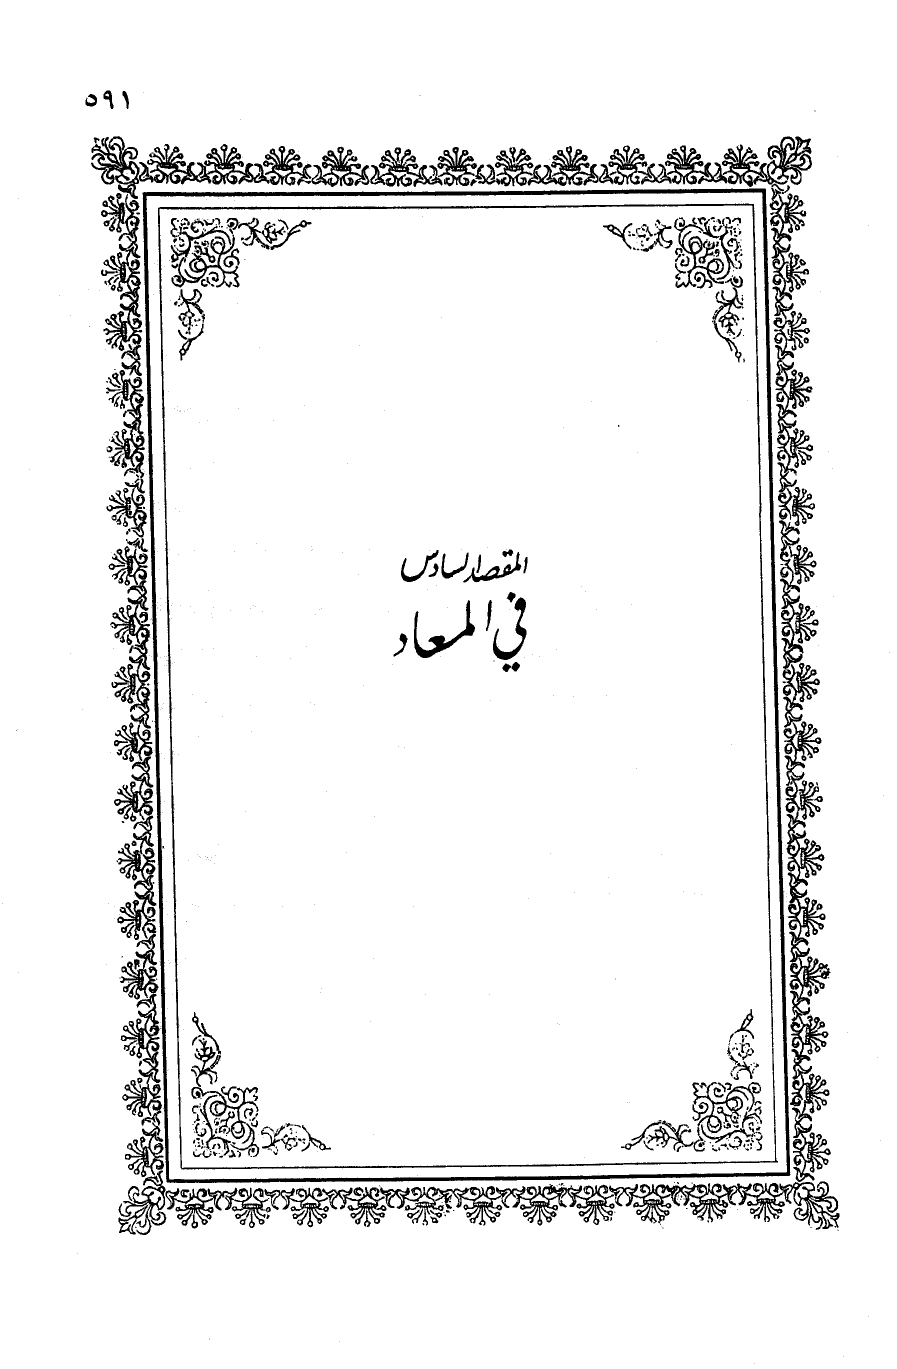 ٥٩١
المقصد السادس
في المعاد